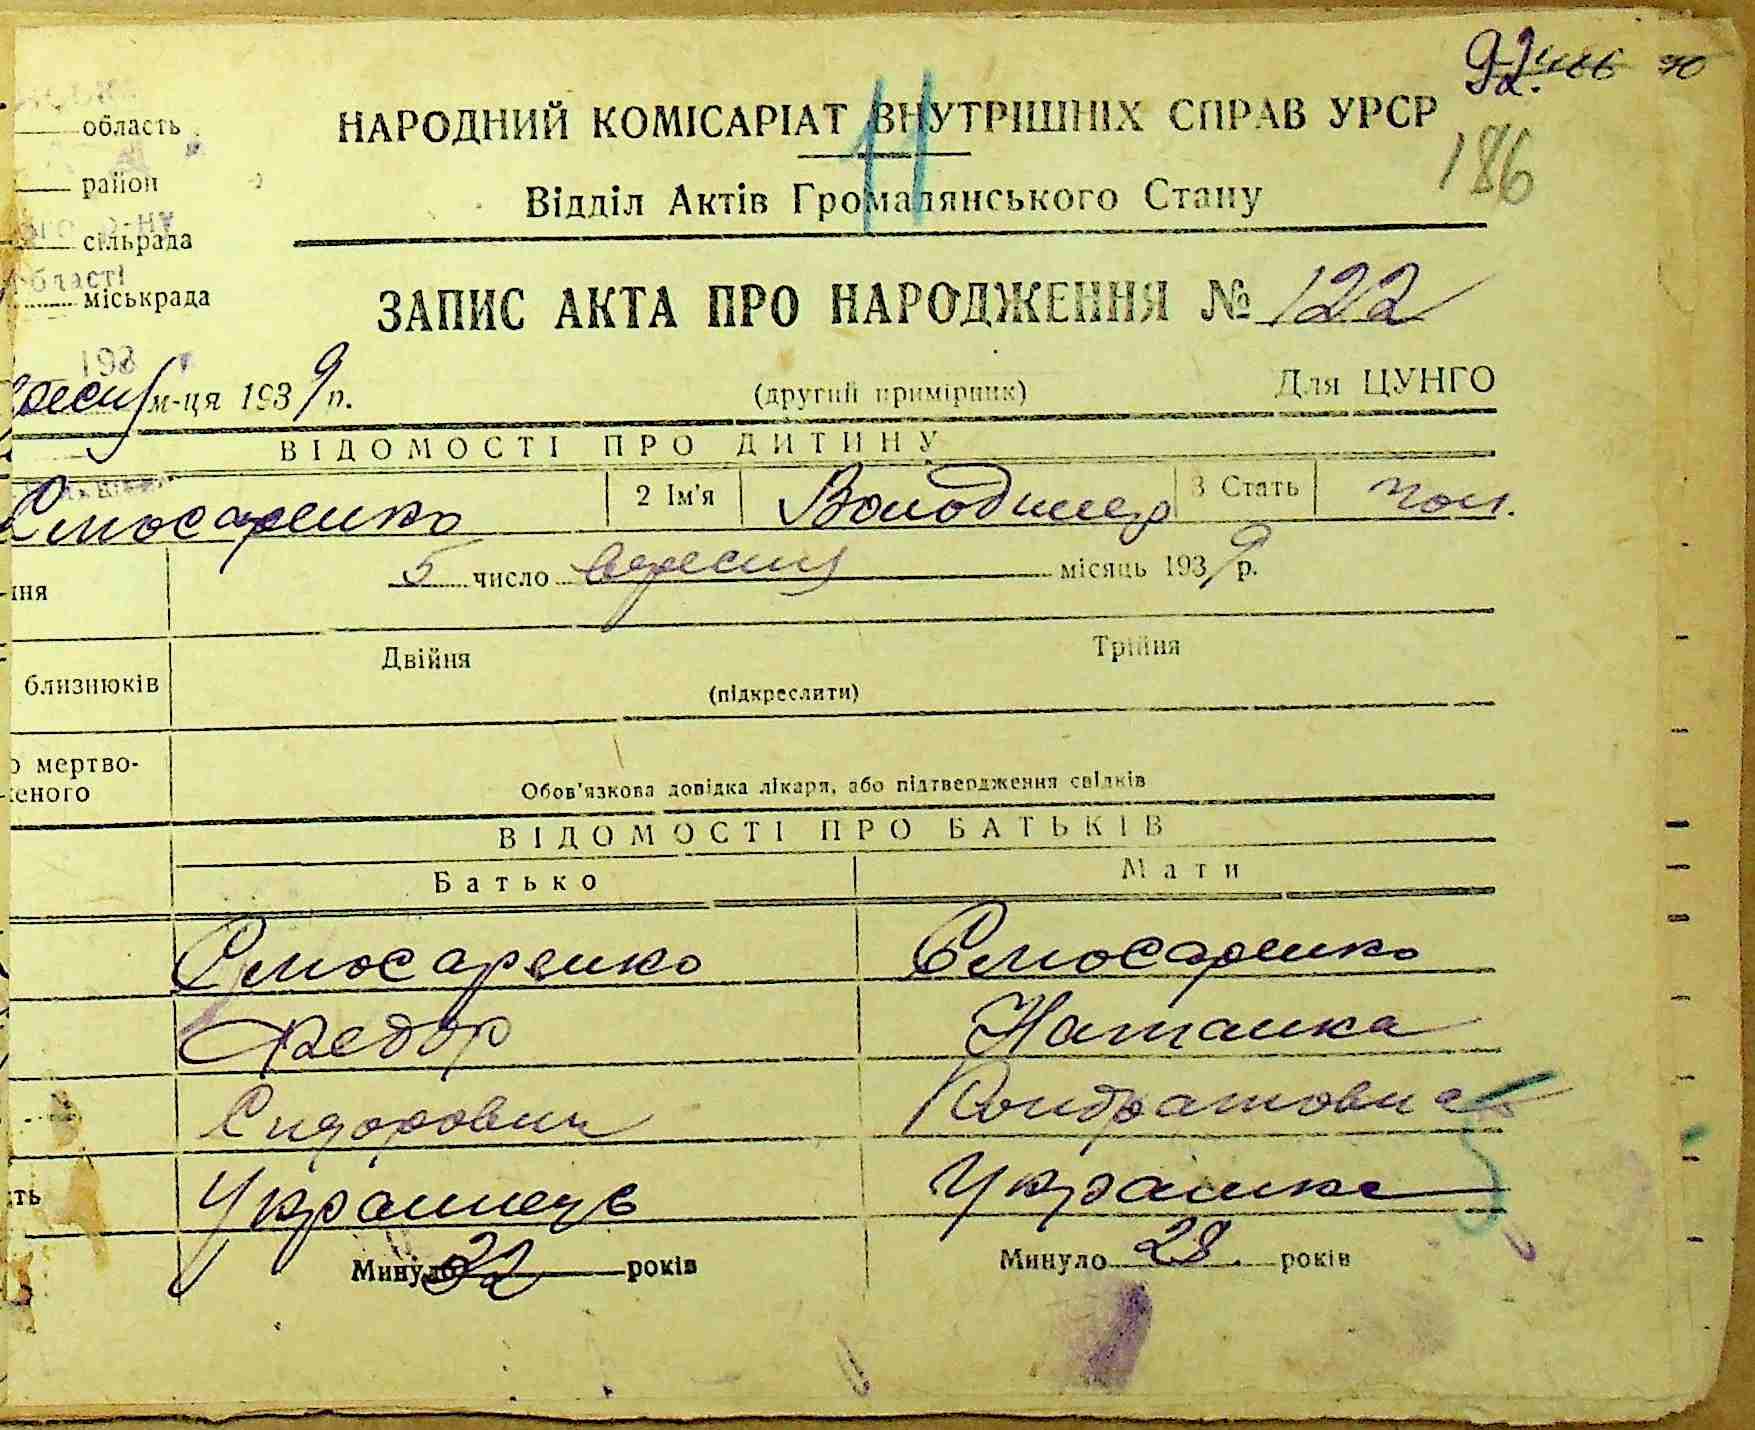 92.
186
11
область
район
сільрада
області
міськрада
НАРОДНИЙ КОМІСАРІАТ ВНУТРІШНІХ СПРАВ УРСР
Відділ Актів Громадянського Стану
ЗАПИС АКТА ПРО НАРОДЖЕННЯ № 122
193
м-ця 1939 р.
(другий примірник)
Для ЦУНГО
ВІДОМОСТІ ПРО ДИТИНУ
Слюсаренко 2 Ім'я Володимер 3 Стать чол.
ння
5 число вересня місяць 1939 р.
Двійня Трійня
близнюків
(підкреслити)
о мертво-
еного
Обов'язкова довідка лікаря, або підтвердження свідків
ВІДОМОСТІ ПРО БАТЬКІВ
Батько Мати
Слюсаренко Слюсаренко
Федор Наталка
Сидорович Кондратовна
ть Українець Українка
Минуло 32 років Минуло 28 років